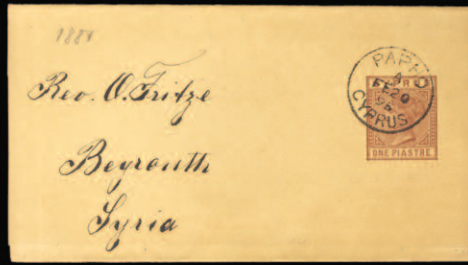 188
Rev. O. Fritze
Beyrouth
Syria
PAPHO
A
FE 20
95
CYPRUS
ONE PIASTRE